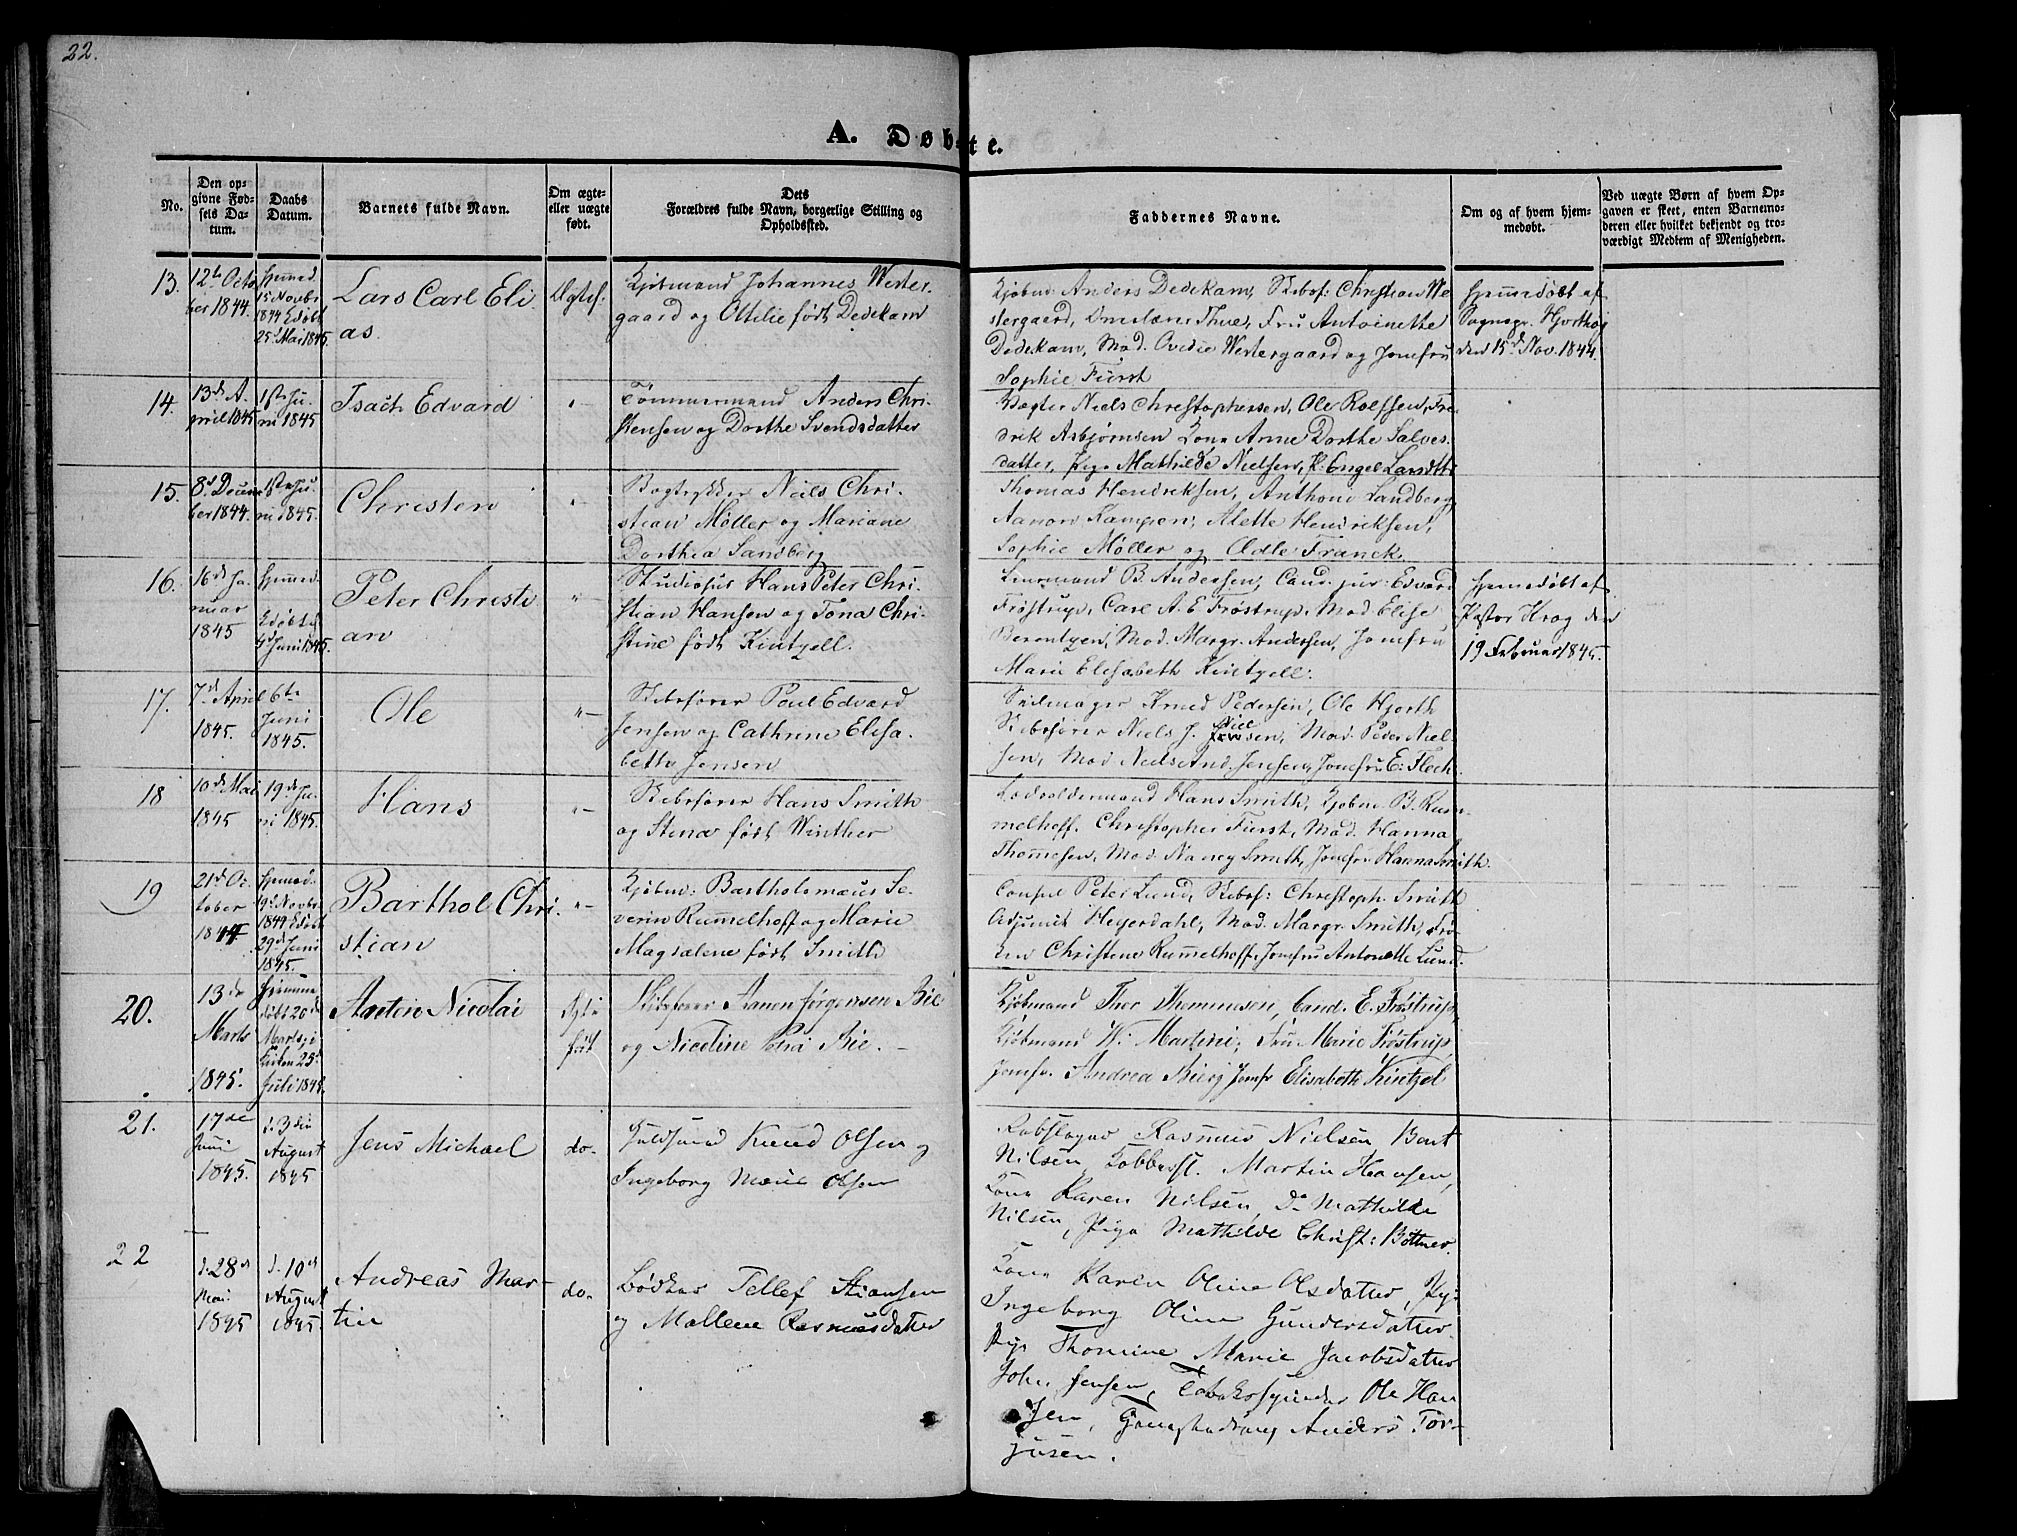 22.
A. Døbte.
No.
Den op-
givne Fød-
sels Da-
tum.
Daabs
Datum.
Barnets fulde Navn.
Om ægte-
eller uægte
født.
Dets
Forældres fulde Navn, borgerlige Stilling og
Opholdssted.
Faddernes Navne.
Om og af hvem hjem-
medøbt.
Ved uægte Børn af hvem Op-
gaven er skeet, enten Barnemo-
deren eller hvilket bekjendt og tro-
værdigt Medlem af Menigheden.
13.
12te Octo
ber 1844.
hjemmed.
15 Novbr
1844
25d Mai 1845.
Lars Carl Eli
as.
Ægtef.
Kjøbmand Johannes Wester-
gaard og Ottilie født Dedekam
Kjøbm. Anders Dedekam, Skibsf: Christian We
stergaard, Thue, Fru Antoinette
Dedekam, Mad. Ovidie Westergaard og Jomfru
Sophie Fürst
Hjemmedøbt af
Sognepr. Hjorthøj
den 15d Nov. 1844.
14.
13de A-
pril 1845
1ste Ju-
ni 1845
Isach Edvard
"-
Tømmermand Anders Chri-
stensen og Dorthe Svendsdatter
Vægter Niels Christophersen, Ole Rolfsen, Fre
drik Asbjørnsen Kone Anne Dorthe Salves-
datter, Pige Mathilde Nielsen, P. Engel Larsdtr
15.
8d Decem
ber 1844.
1ste Ju-
ni 1845.
Christen
"-
Bogtrykker Niels Chri-
stian Møller og Mariane
Dorthea Sandberg
Thomas Hendriksen, Anthone Landberg
Aanon Kampen, Alette Hendriksen,
Sophie Møller og Adle Franck.
16.
16d Ja-
nuar
1845
hjemmed.
4d Juni 1845.
Peter Christi
an
"-
Studiosus Hans Peter Chri-
stian Hansen og Tona Chri-
stine født Kintzell.
B. Andersen, Cand. jur. Edvard
Frøstrup, Carl A. E Frøstrup, Mad. Elise
Berentzen, Mad. Margr. Andersen, Jomfru
Marie Elisabeth Kintzell.
Hjemmedøbt af
Pastor Krog den
19 Februar 1845.
17.
7d April
1845.
6te
Juni
1845.
Ole
"-
Skibsfører Poul Edvard
Jensen og Cathrine Elisa-
beth Jensen
Seilmager Knud Pedersen, Ole Hjorth
Skibsfører Niels J. Nielsen, Mad. Peder Niel-
sen, Mad Niels And. Jensen, Jomfru E: Fleck.
18
10de Mai
1845
19de Ju-
ni 1845.
Hans
"-
Skibsfører Hans Smith
og Stena født Winther
Lodsoldermand Hans Smith, Kjøbm. B. Rum-
melhoff. Christopher Fürst, Mad. Hanna
Thommesen, Mad. Nancy Smith, Jomfru Hanna Smith.
19
21d Oc-
tober
1844
hjemmed.
9d Novbr
1844
29d Juni
1845.
Barthol Chri-
stian
"-
Kjøbm: Bartholomæus Se-
verin Rummelhoff og Marie
Magdalene født Smith
Consul Peter Lund, Skibsf: Christoph. Smith
Adjunct Heyerdahl, Mad. Margr. Smith, Frø-
ken Christine Rummelhoff, Jomfru Antonette Lund.
20.
13de
Marts
1845.
hjemme
døbt 20de
Marts, i
Kirken 25d
Juli 1845.
Anton Nicolai
Ægte
født
Skibsfører Aanon Jørgensen Bie
og Nicoline Bie.-
Kjøbmand Thor Thommesen, Cand. E. Frøstrup,
Kjøbmand W. Martini, Fru Marie Frøstrup,
Jomfr. Andrea Bie, Jomfr Elisabeth Kintzel
21.
17de
Juni
1845.
d. 3die
August
1845
Jens Michael
do.
Knud Olsen og
Ingeborg Marie Olsen
Rebslager Rasmus Nielsen, Bent
Nilsen, Kobberst. Martin Hansen,
Kone Karen Nilsen, Do Mathilde
Nilsen, Pige Mathilde Christ: Bøttner.
22
d. 28de
Mai
1845
d. 10de
August
1845.
Andreas Mar-
tin
do.
Bødker Tellef Stiansen
og Mallene Rasmusdatter
Kone Karen Oline Olsdatter, Pige
Ingeborg Oline Gundersdatter
Pige Thomine Marie Jacobsdatter
John Jensen, Tobaksspinder Ole Han
sen, Anders Tor-
jusen.